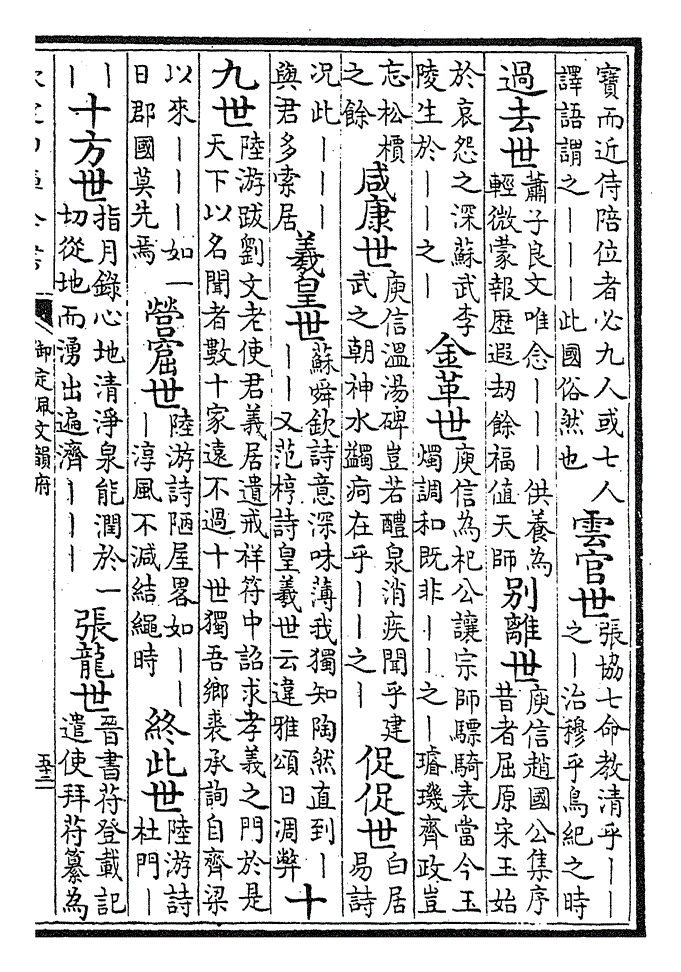 寶而近侍陪位者必九人或七人
譯語謂之｜｜｜此國俗然也
雲官世
張協七命教清乎｜｜
之｜治穆乎鳥紀之時
過去世
蕭子良文唯念｜｜｜供養為
輕微蒙報歷遐刼餘福值天師
別離世
庾信趙國公集序
昔者屈原宋玉始
於哀怨之深蘇武李
陵生於｜｜之｜
金革世
庾信為杞公讓宗師驃騎表當今玉
燭調和既非｜｜之｜璿璣齊政豈
忘松檟
之餘
咸康世
庾信溫湯碑豈若醴泉消疾聞乎建
武之朝神水蠲疴在乎｜｜之｜
促促世
白居
易詩
況此｜｜｜
與君多索居
羲皇世
蘇舜欽詩意深味薄我獨知陶然直到｜
｜｜又范梈詩皇羲世云違雅頌日凋弊
十
九世
陸游跋劉文老使君義居遺戒祥符中詔求孝義之門於是
天下以名聞者數十家遠不過十世獨吾鄉裘承詢自齊梁
以來｜｜｜如一
日郡國莫先焉
營窟世
陸游詩陋屋畧如｜｜
｜淳風不減結繩時
終此世
陸游詩
杜門｜
｜
｜
十方世
指月錄心地清淨泉能潤於一
切從地而湧出遍濟｜｜｜
張龍世
晉書苻登載記
遣使拜苻纂為
御定佩文韻府